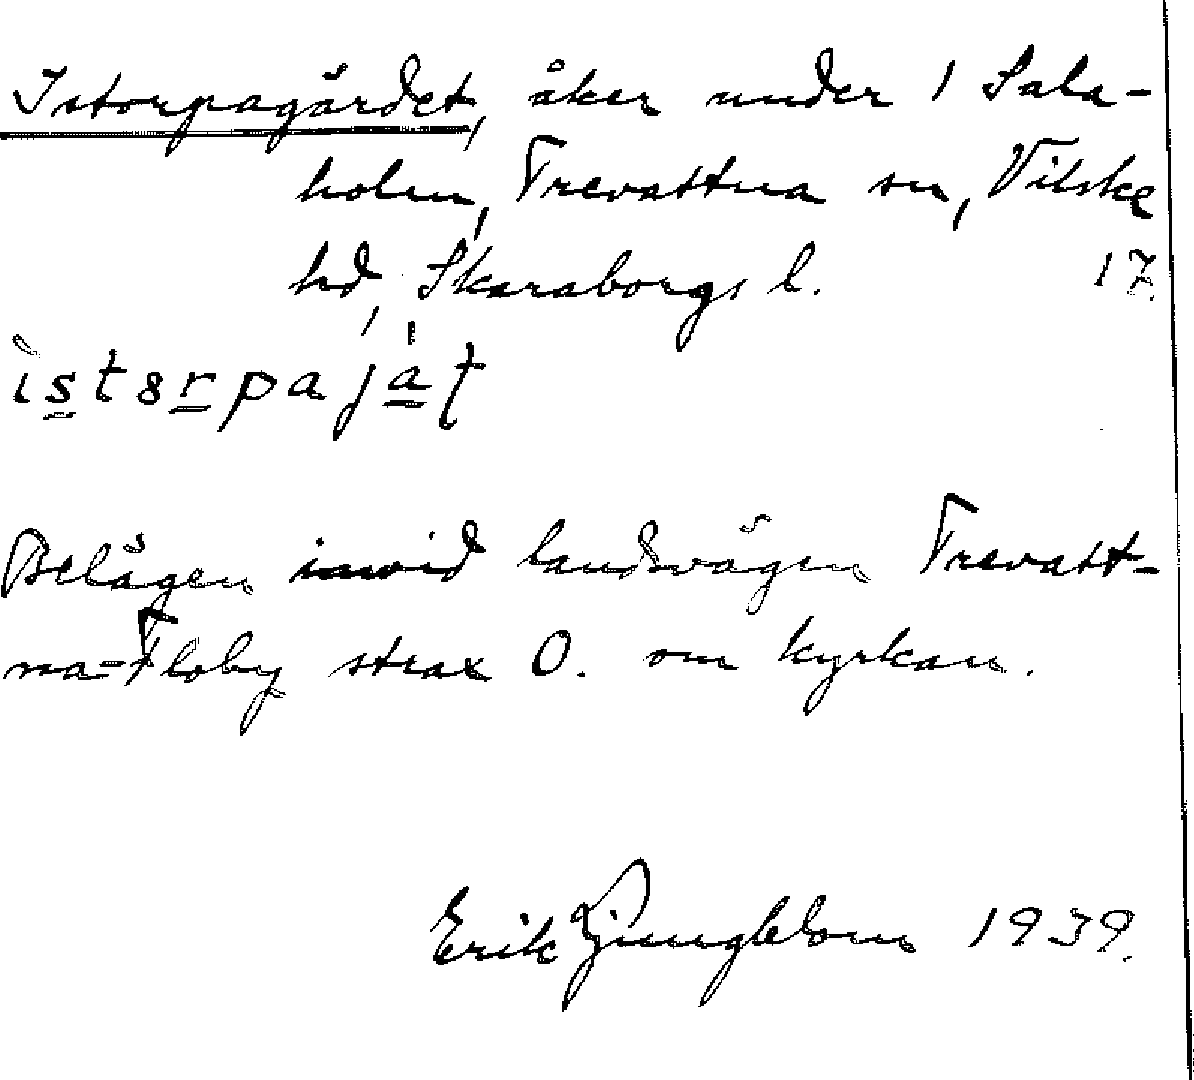 Istorpagärdet, åker under 1 Sala-
holm, Trevattna sn, Vilske
hd, Skaraborgs l. 17.
ìstsrpajàt
Belägen invid landsvägen Trevatt-
na-Floby strax O. om kyrkan.
Erik Ljungblom 1939.